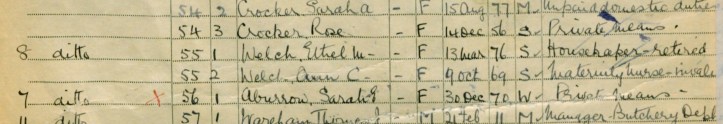 54 2 Crocker, Sarah A - F 15 Aug 77 M - Unpaid domestic duties
54 3 Crocker, Rose - F 14 Dec 56 S - Private Means.
8 ditto 55 1 Welch, Ethel M - F 13 Mar 76 S - Housekeeper - retired
55 2 Welch, Ann C - F 9 Oct 69 S - Maternity Nurse -
7 ditto x 56 1 Aburrow, Sarah E - F 30 Dec 70 W - Privat Means -
11 ditto 57 1 Wareham Thomas J M 21 Feb 11 M - Manager Butchery Dept